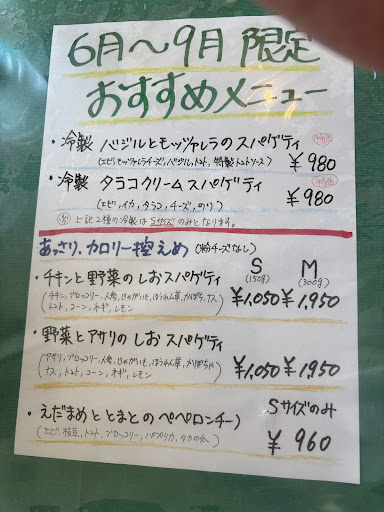 6月〜9月 限定
おすすめメニュー
・冷製 バジルとモッツァレラのスパゲティ
(エビ,モッツァレラチーズ,バジル,トマト, 特製トマトソース) ¥980
・冷製 タラコクリームスパゲティ
(エビ,イカ,タラコ,チーズ,のり) ¥980
上記2種の冷製はSサイズのみとなります。
あっさり、カロリー控えめ (粉チーズなし)
S M
(150g) (300g)
・チキンと野菜のしおスパゲティ ¥1,050 ¥1,950
(チキン,ブロッコリー,人参,じゃがいも,ほうれん草,かぼちゃ,ナス
トマト,コーン,ネギ,レモン)
・野菜とアサリのしおスパゲティ ¥1,050 ¥1,950
(アサリ,ブロッコリー,人参,じゃがいも,ほうれん草,かぼちゃ
ナス,トマト,コーン,ネギ,レモン)
・えだまめととまとのペペロンチーノ Sサイズのみ
(エビ,枝豆,トマト,ブロッコリー,パプリカ,タカのつめ) ¥960